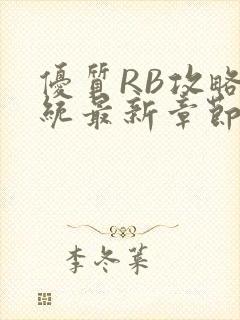 優質RB攻略
統最新章節
李冬葉